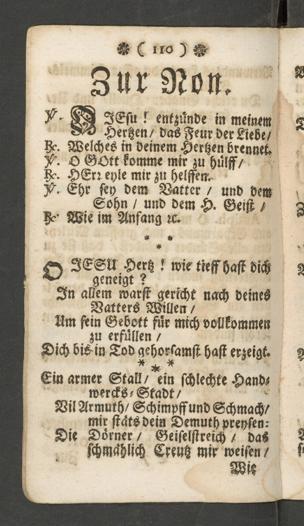 ❋ ( 110 ) ❋
Zur Non.
℣. O JEsu ! entzünde in meinem
Hertzen / das Feur der Liebe /
℟. Welches in deinem Hertzen brennet.
℣. O GOtt komme mir zu hülff /
℟. HErr eyle mir zu helffen.
℣. Ehr sey dem Vatter / und dem
Sohn / und dem H. Geist /
℟. Wie im Anfang ꝛc.
* * *
O JESU Hertz ! wie tieff hast dich
geneigt ?
In allem warst gericht nach deines
Vatters Willen /
Um sein Gebott für mich vollkommen
zu erfüllen /
Dich bis in Tod gehorsamst hast erzeigt.
* * *
Ein armer Stall / ein schlechte Hand-
wercks-Stadt /
Vil Armuth / Schimpff und Schmach /
mir stäts dein Demuth preysen:
Die Dörner / Geiselstreich / das
schmählich Creutz mir weisen /
Wie